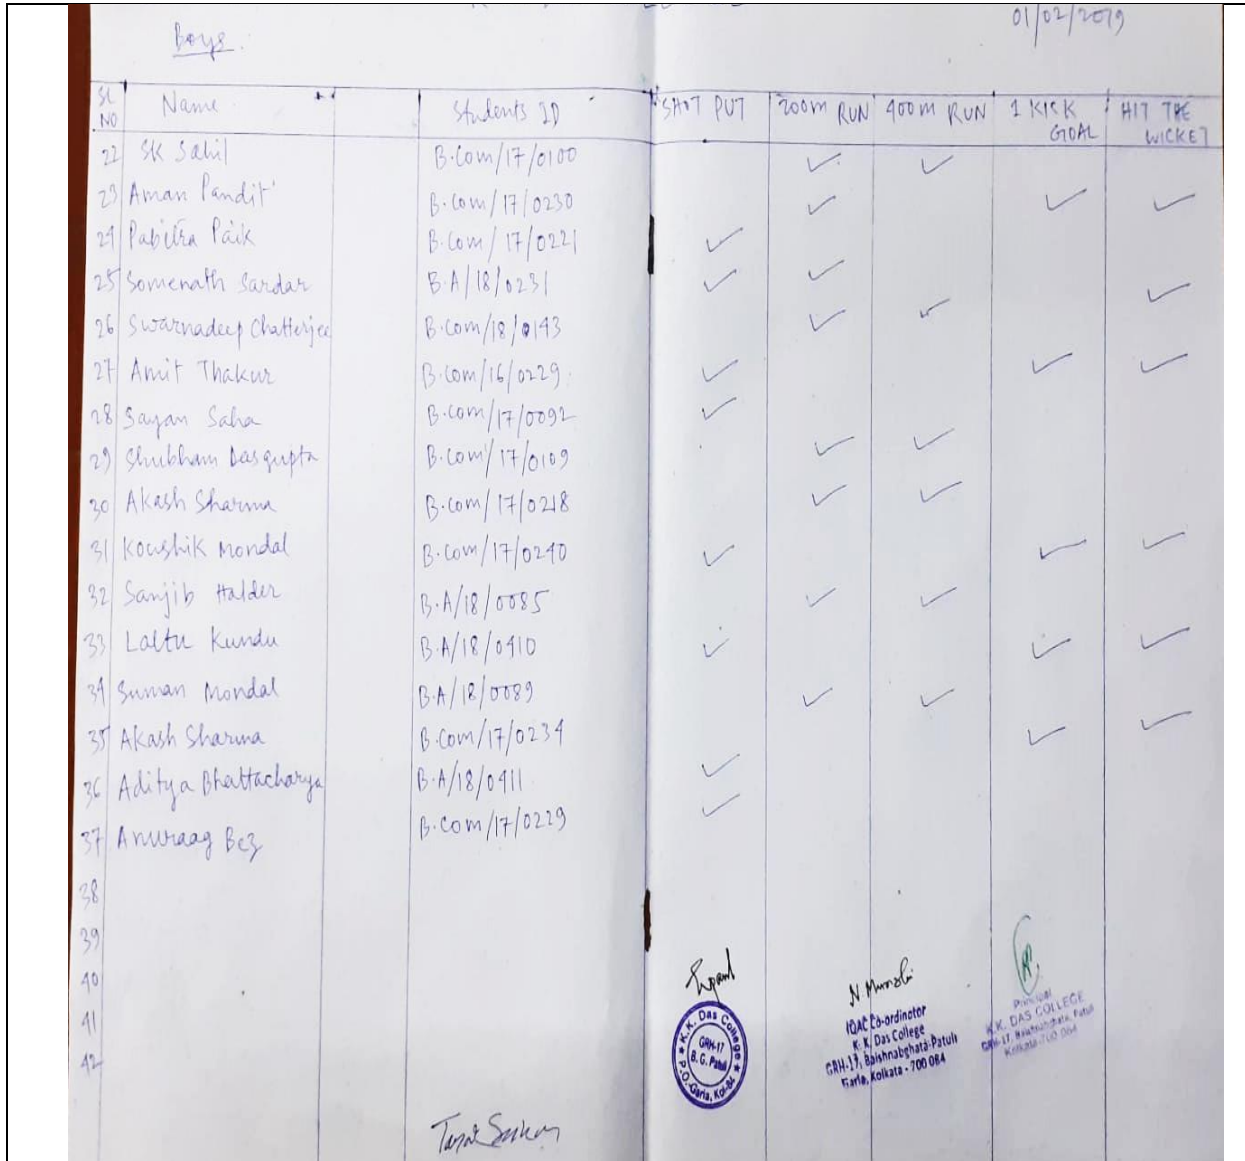 01/02/2019
Boys.
SL NO Name Students ID SHOT PUT 200m RUN 400m RUN 1 KICK GOAL HIT THE WICKET
22 SK Sahil B.Com/17/0100 ✓ ✓
23 Aman Pandit B.Com/17/0230 ✓ ✓ ✓
24 Pabitra Paik B.Com/17/0221 ✓
25 Somenath Sardar B.A/18/0231 ✓ ✓ ✓
26 Swarnadeep Chatterjee B.Com/18/0143 ✓ ✓
27 Amit Thakur B.Com/16/0229 ✓ ✓ ✓
28 Sayan Saha B.Com/17/0092 ✓
29 Shubham Dasgupta B.Com/17/0109 ✓ ✓
30 Akash Sharma B.Com/17/0218 ✓ ✓
31 Koushik Mondal B.Com/17/0240 ✓ ✓ ✓
32 Sanjib Halder B.A/18/0085 ✓ ✓
33 Laltu Kundu B.A/18/0410 ✓ ✓ ✓
34 Suman Mondal B.A/18/0089 ✓ ✓
35 Akash Sharma B.Com/17/0234 ✓ ✓
36 Aditya Bhattacharya B.A/18/0411 ✓
37 Anuraag Bez B.Com/17/0229 ✓
38
39
40
41
42
K.K. Das College
GRH-17
B. G. Patuli
P.O.-Garia, Kol-84
N. Munshi
IQAC Co-ordinator
K. K. Das College
GRH-17, Baishnabghata-Patuli
Garia, Kolkata - 700 084
Principal
K.K. DAS COLLEGE
GRH-17, Baishnabghata, Patuli
Kolkata-700 084